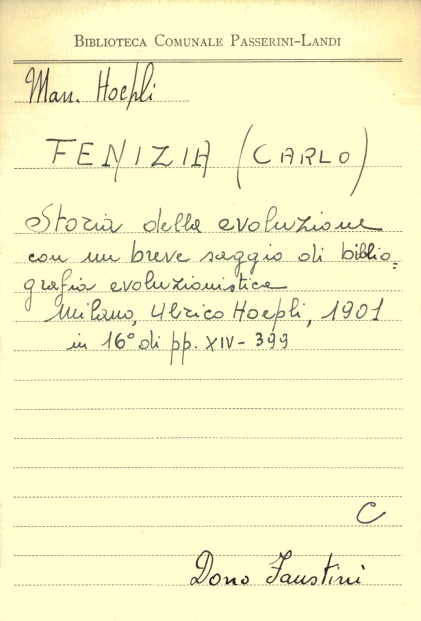 BIBLIOTECA COMUNALE PASSERINI-LANDI
Man. Hoepli
FENIZIA (CARLO)
Storia della evoluzione
con un breve saggio di biblio=
grafia evoluzionistica
Milano, Ulrico Hoepli, 1901
in 16° di pp. XIV-399
C
Dono Faustini